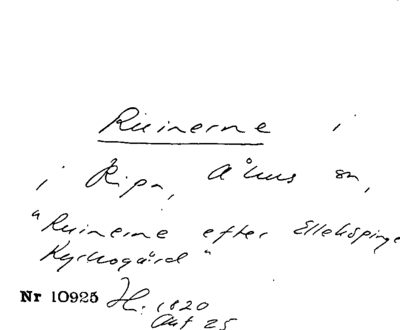 Ruinerne i
i Ripa, Åhus sn,
"Ruinerne efter Elleköpinge
Kyrkogård"
Nr 10925 H. 1820
Akt 25